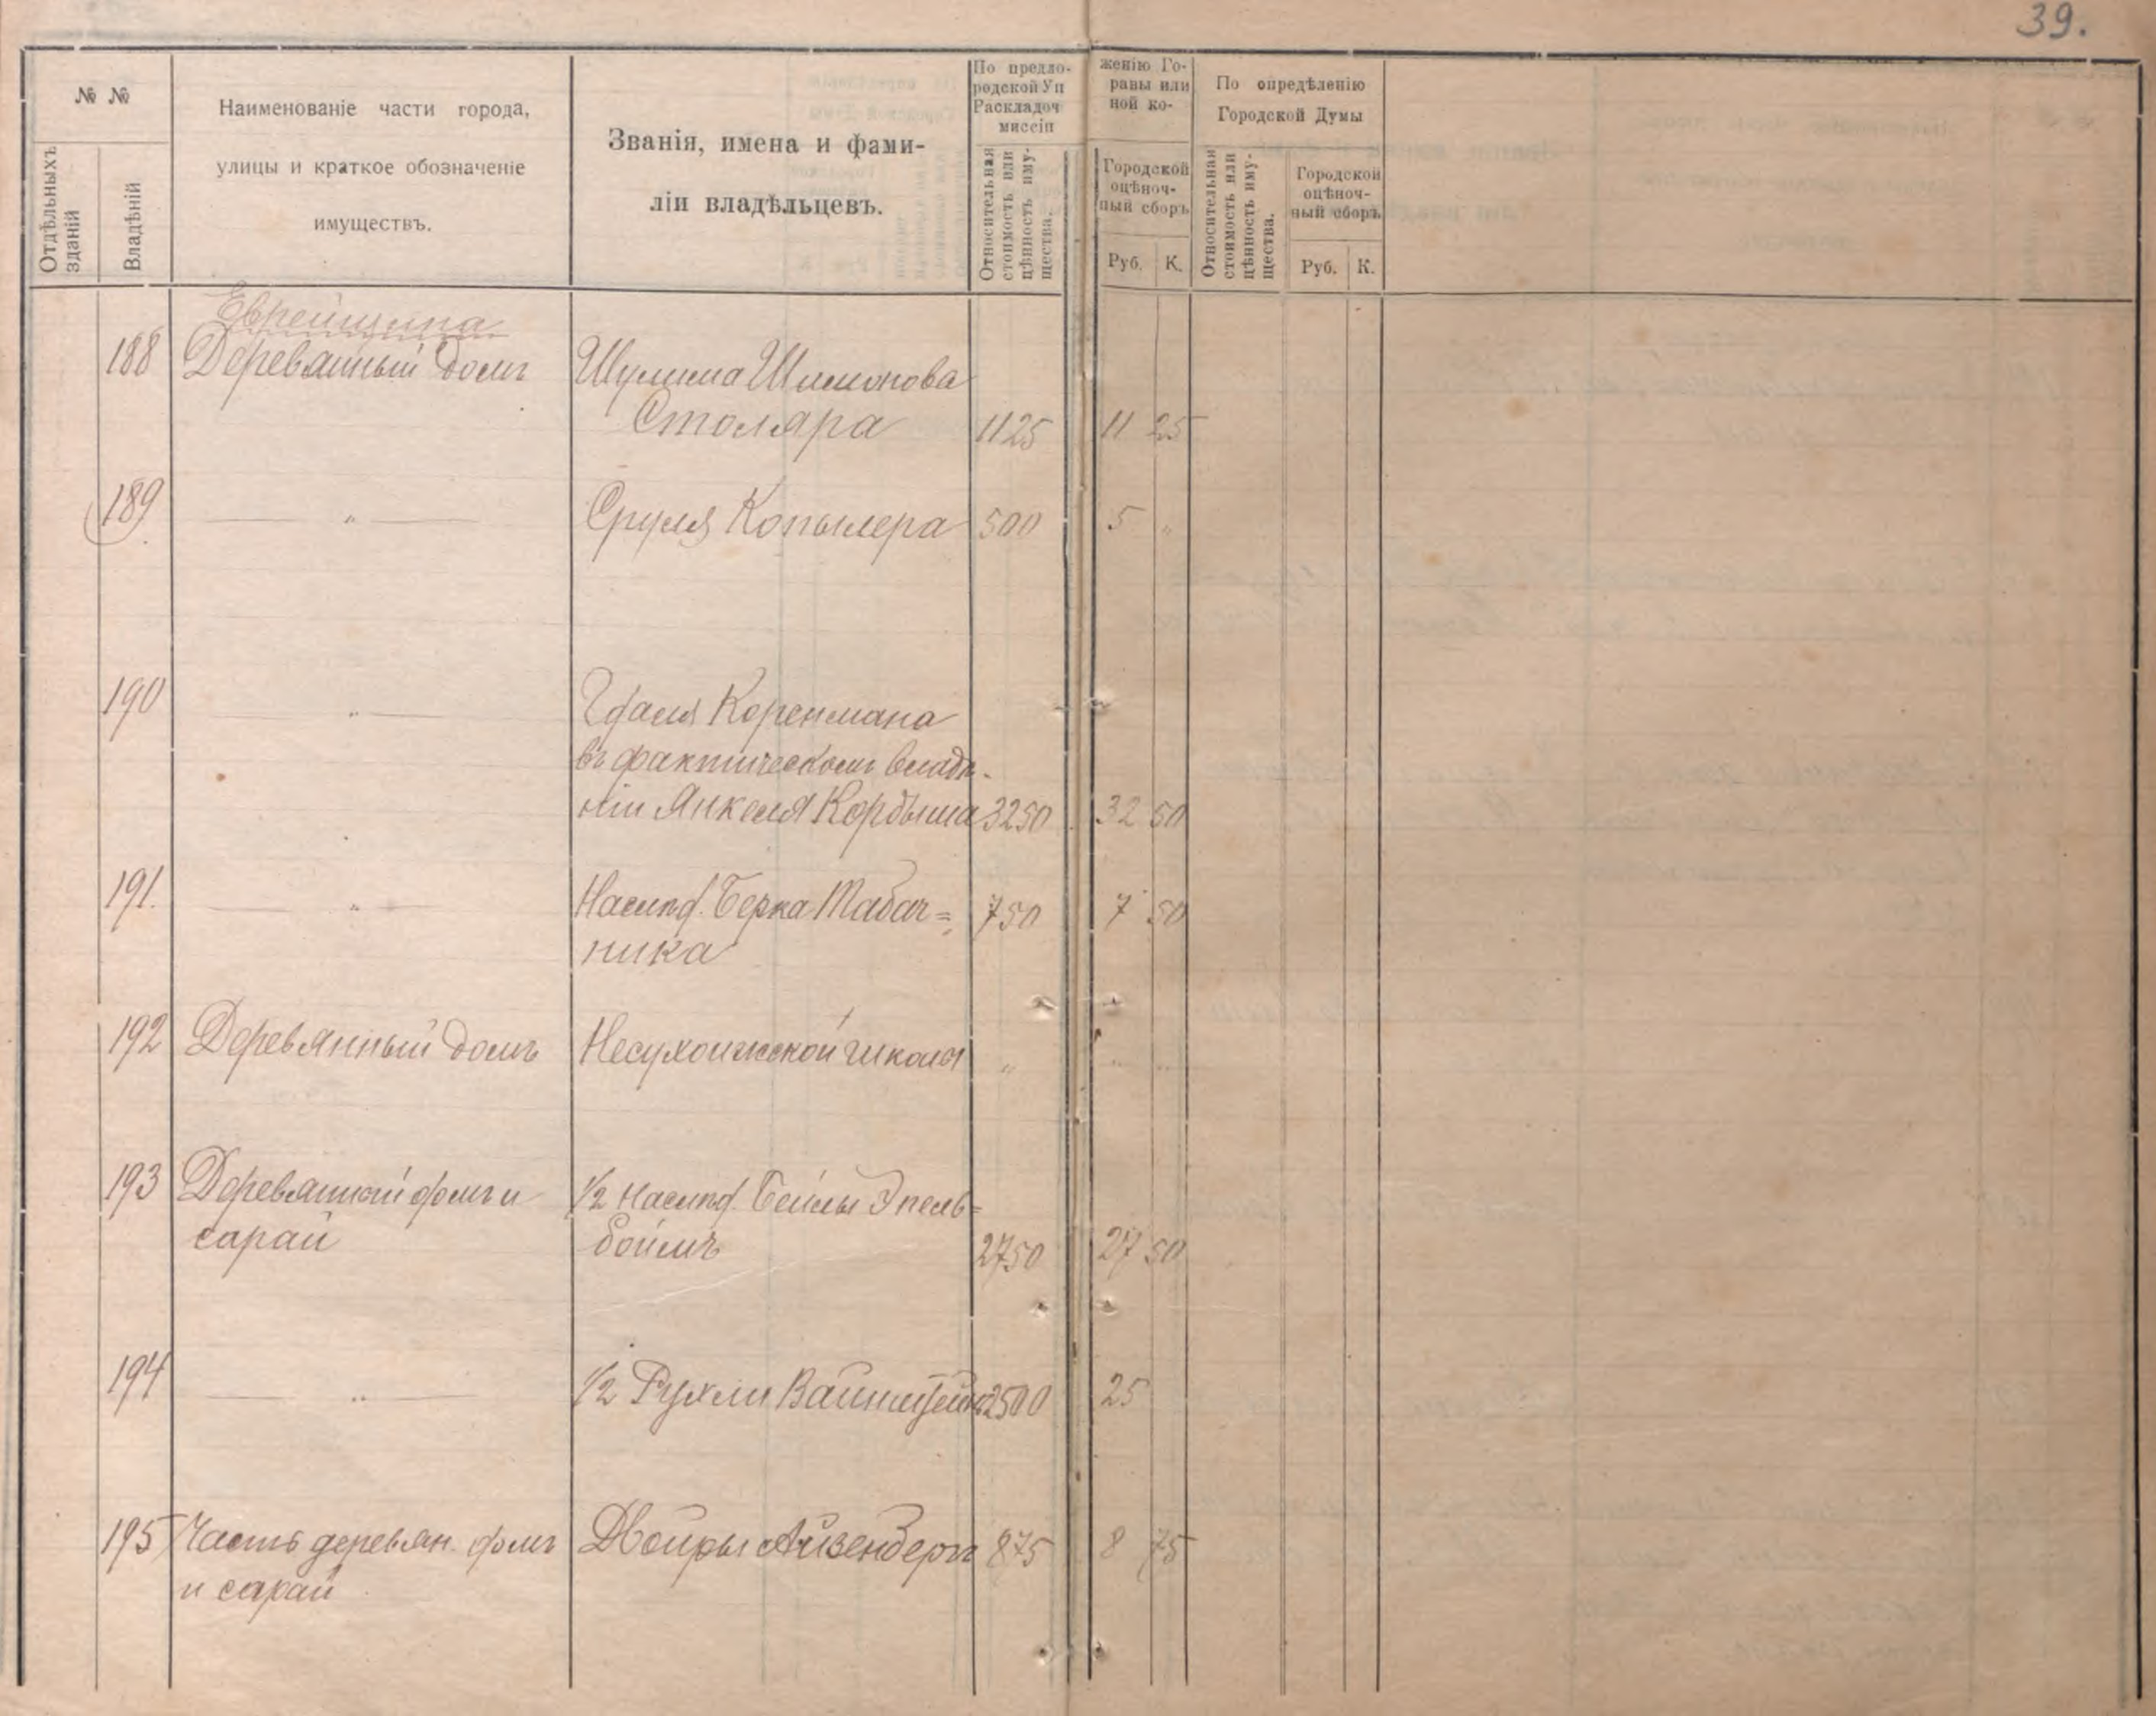 39.
№ №
Отдѣльныхъ зданій
Владѣній
Наименованіе части города,
улицы и краткое обозначеніе
имуществъ.
Званія, имена и фами-
ліи владѣльцевъ.
По предло-
родской Уп
Раскладоч
миссіи
женію Го-
равы или
ной ко-
Относительная
стоимость или
цѣнность иму-
щества.
Городской
оцѣноч-
ный сборъ
Руб. К.
По опредѣленію
Городской Думы
Относительная
стоимость или
цѣнность иму-
щества.
Городской
оцѣноч-
ный сборъ
Руб. К.
Еврейщина
188 Деревянный домъ Шулима Шимонова
Столяра 1125 11 25
189 — " — Сруля Копылера 500 5 "
190 " — Коренмана
въ фактическомъ владѣ-
ніи Янкеля Кордыша 3250 32 50
191. — " — Наслѣд. Берка Табач=
ника 750 7 50
192 Деревянный домъ Несухоижской школы " " "
193 Деревянный домъ и 1/2 Наслѣд. Бейлы Эпель=
сарай боймъ 2750 27 50
194 — " — 1/2 Рухли Вайнштейнъ 2500 25
195 Часть деревян. домъ Двойры Айзенбергъ 875 8 75
и сарай